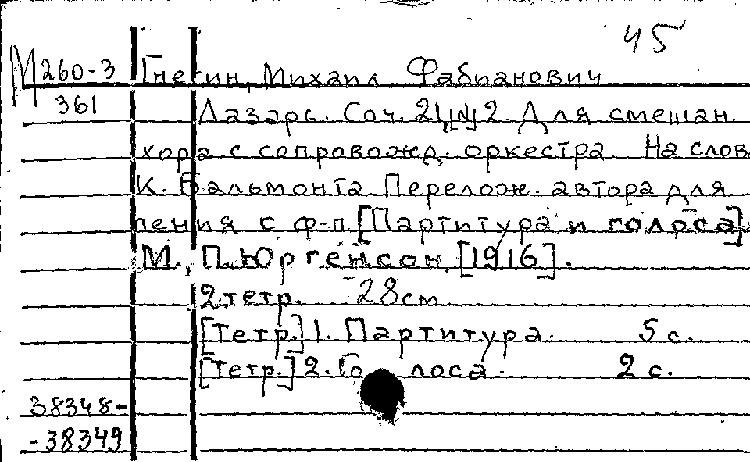 45
М260-3 Гнесин, Михаил Фабианович
361 Лазарь. Соч. 21, № 2 Для смешан.
хора с сопровожд. оркестра. На слов
К. Бальмонта. Перелож. автора для
пения с ф-п [Партитура и голоса].
М., П. Юргенсон, [1916].
2 тетр. 28 см.
[Тетр.] 1. Партитура. 5 с.
[Тетр.] 2. Голоса. 2 с.
38348-
-38349